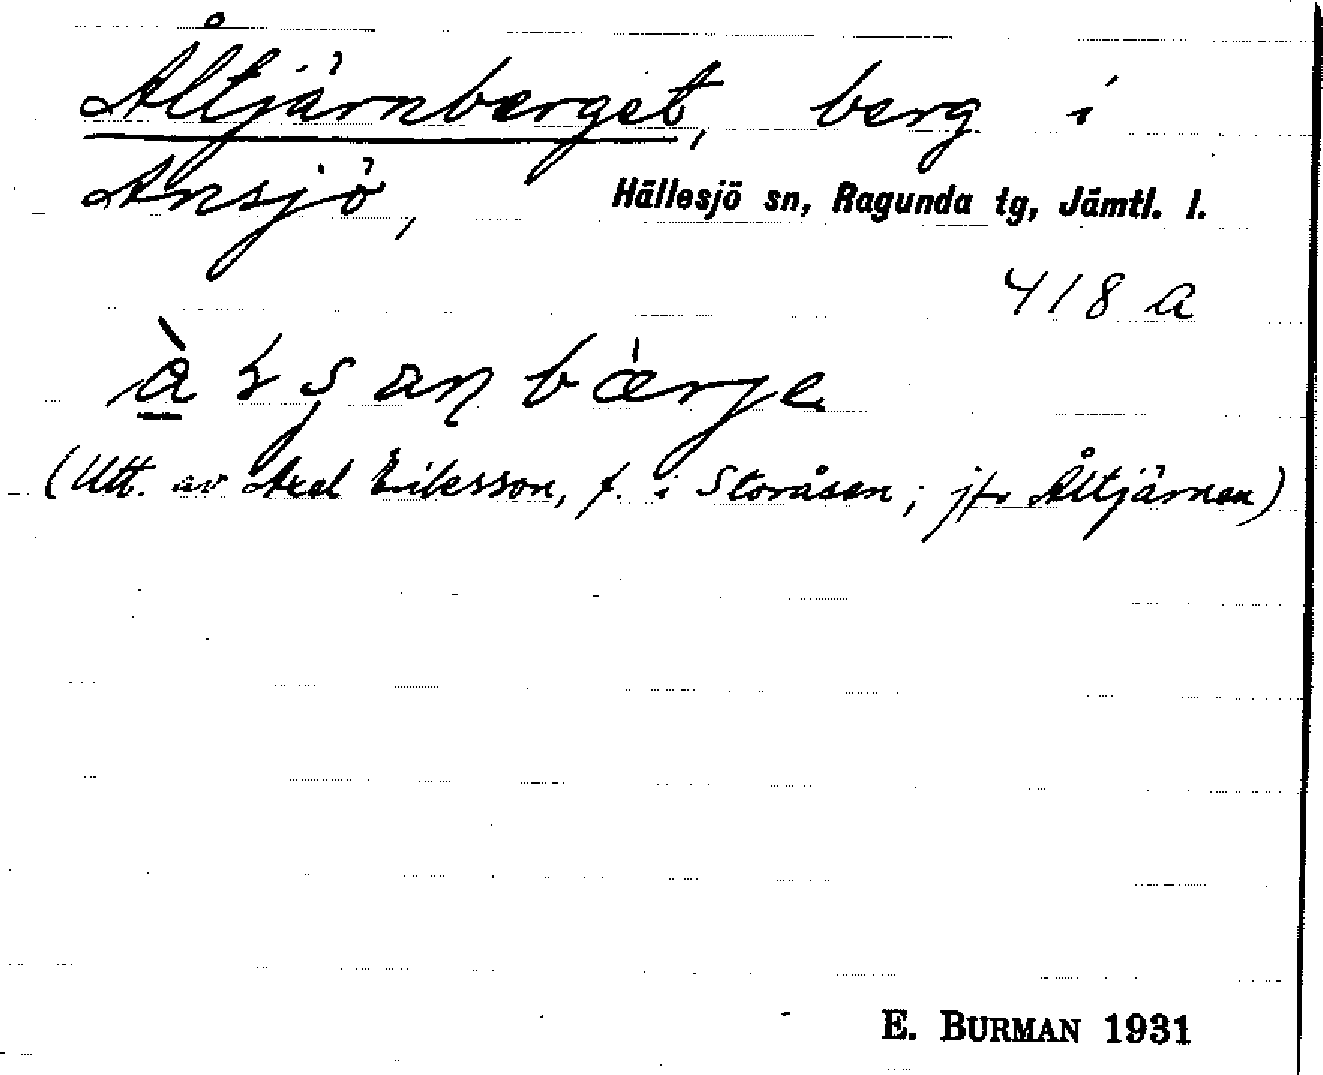 Åltjärnberget, berg i
Ansjö, Hällesjö sn, Ragunda tg, Jämtl. l.
418 a
(Utt. av Axel Eriksson, f. i Storåsen; jfr Åltjärnen)
E. BURMAN 1931